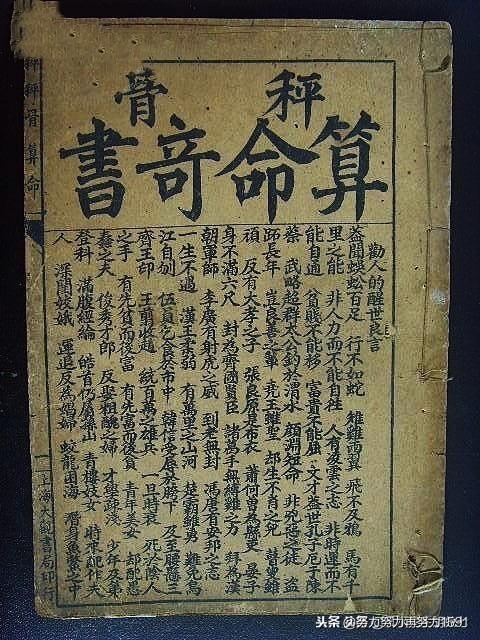 秤骨
算命奇書
勸人的醒世良言
蓋聞蜈蚣百足 行不如蛇 雄雞兩翼 飛不及鴉 馬有千
里之能 非人力而不能自往 人有凌雲之志 非時運而不
能自通 貧賤不能移 富貴不能屈 文才蓋世孔子厄于陳
蔡 武略超群太公釣於渭水 顏淵短命 非兇惡之徒 盜
長年 豈良善之輩 堯王雖聖 却生不肖之兒 瞽叟雖
頑 反有大孝之子 張良原是布衣 蕭何曾為縣吏 晏子
身不滿六尺 封為齊國賢臣 諸葛手無縛雞之力 拜為漢
朝軍師 李廣有射虎之威 到老無封 馮唐有安邦之志
一生不遇 漢王柔弱 有萬里之山河 楚霸雖勇 難免烏
江自刎 伍員乞食於市中 韓信受辱於胯下 及至腰懸三
齊王印 王翦收趙 統百萬之雄兵 一旦時衰 死於陰人
之手 有先貧而後富 有先富而後貧 青年美女 却配愚
蠢之夫 俊秀才郎 反娶粗醜之婦 才學疎淺 少年及第
登科 滿腹經綸 皓首仍屬深山 青樓妓女 時來配作夫
人 深閨姣娥 運退反為娼婦 蛟龍困海 潛身魚鱉之中
上海大觀書局印行
秤骨算命
头条@努力努力再努力1591